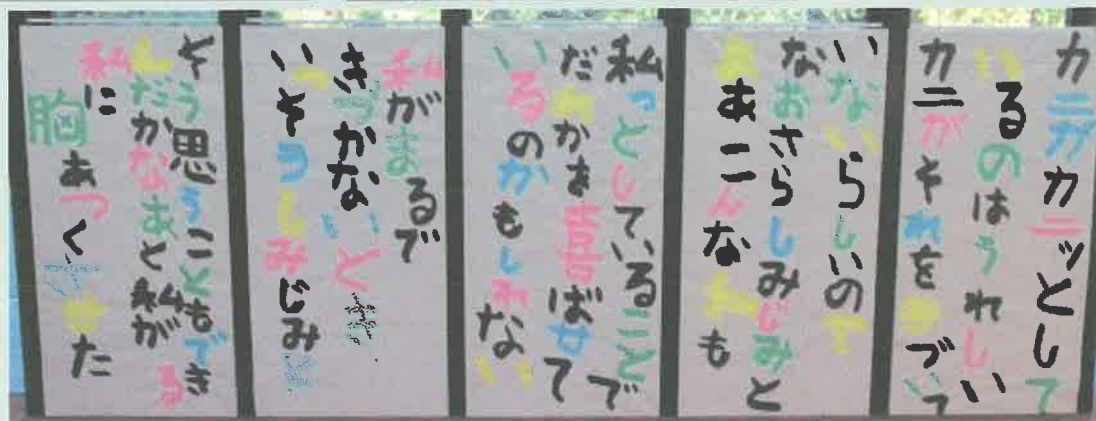 カニがカニッとして
いるのはうれしい
カニがそれをきづいて
いないらしいので
なおさらしみじみと
まあこんな私も
私っとしていることで
だれかを喜ばせて
いるのかもしれない
私がまるで
きづかないとき
いっそうしみじみと
そう思うこともできる
んだかなあと私が
私に
胸あつくさせた